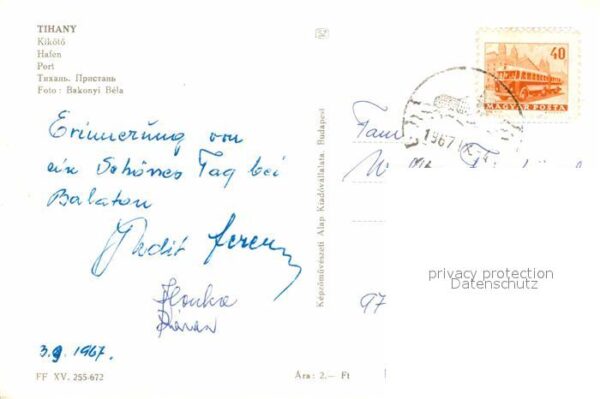 TIHANY
Kikötő
Hafen
Port
Тихань. Пристань
Foto: Bakonyi Béla
Erinnerung von
ein Schönes Tag bei
Balaton
Ilonka
3.9. 1967.
FF XV. 255-672
Ára: 2.— Ft
Képzőművészeti Alap Kiadóvállalata, Budapest
40
MAGYAR POSTA
1967 IX.
Fam
97
privacy protection
Datenschutz